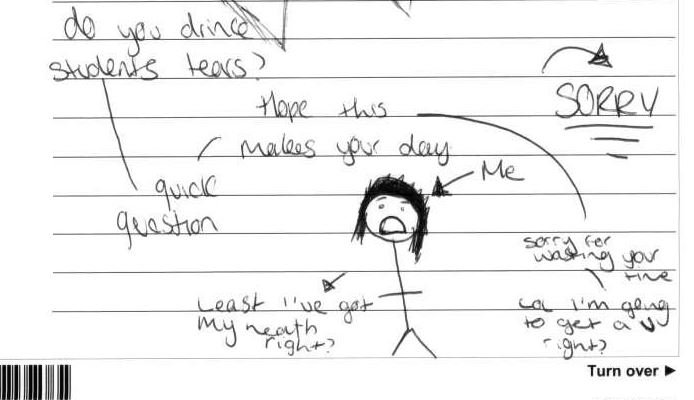 do you drink
students tears?
SORRY
Hope this
makes your day
Me
quick
question
sorry for
wasting your
time
Least I've got
my health
right?
ca I'm going
to get a U
right?
Turn over ►